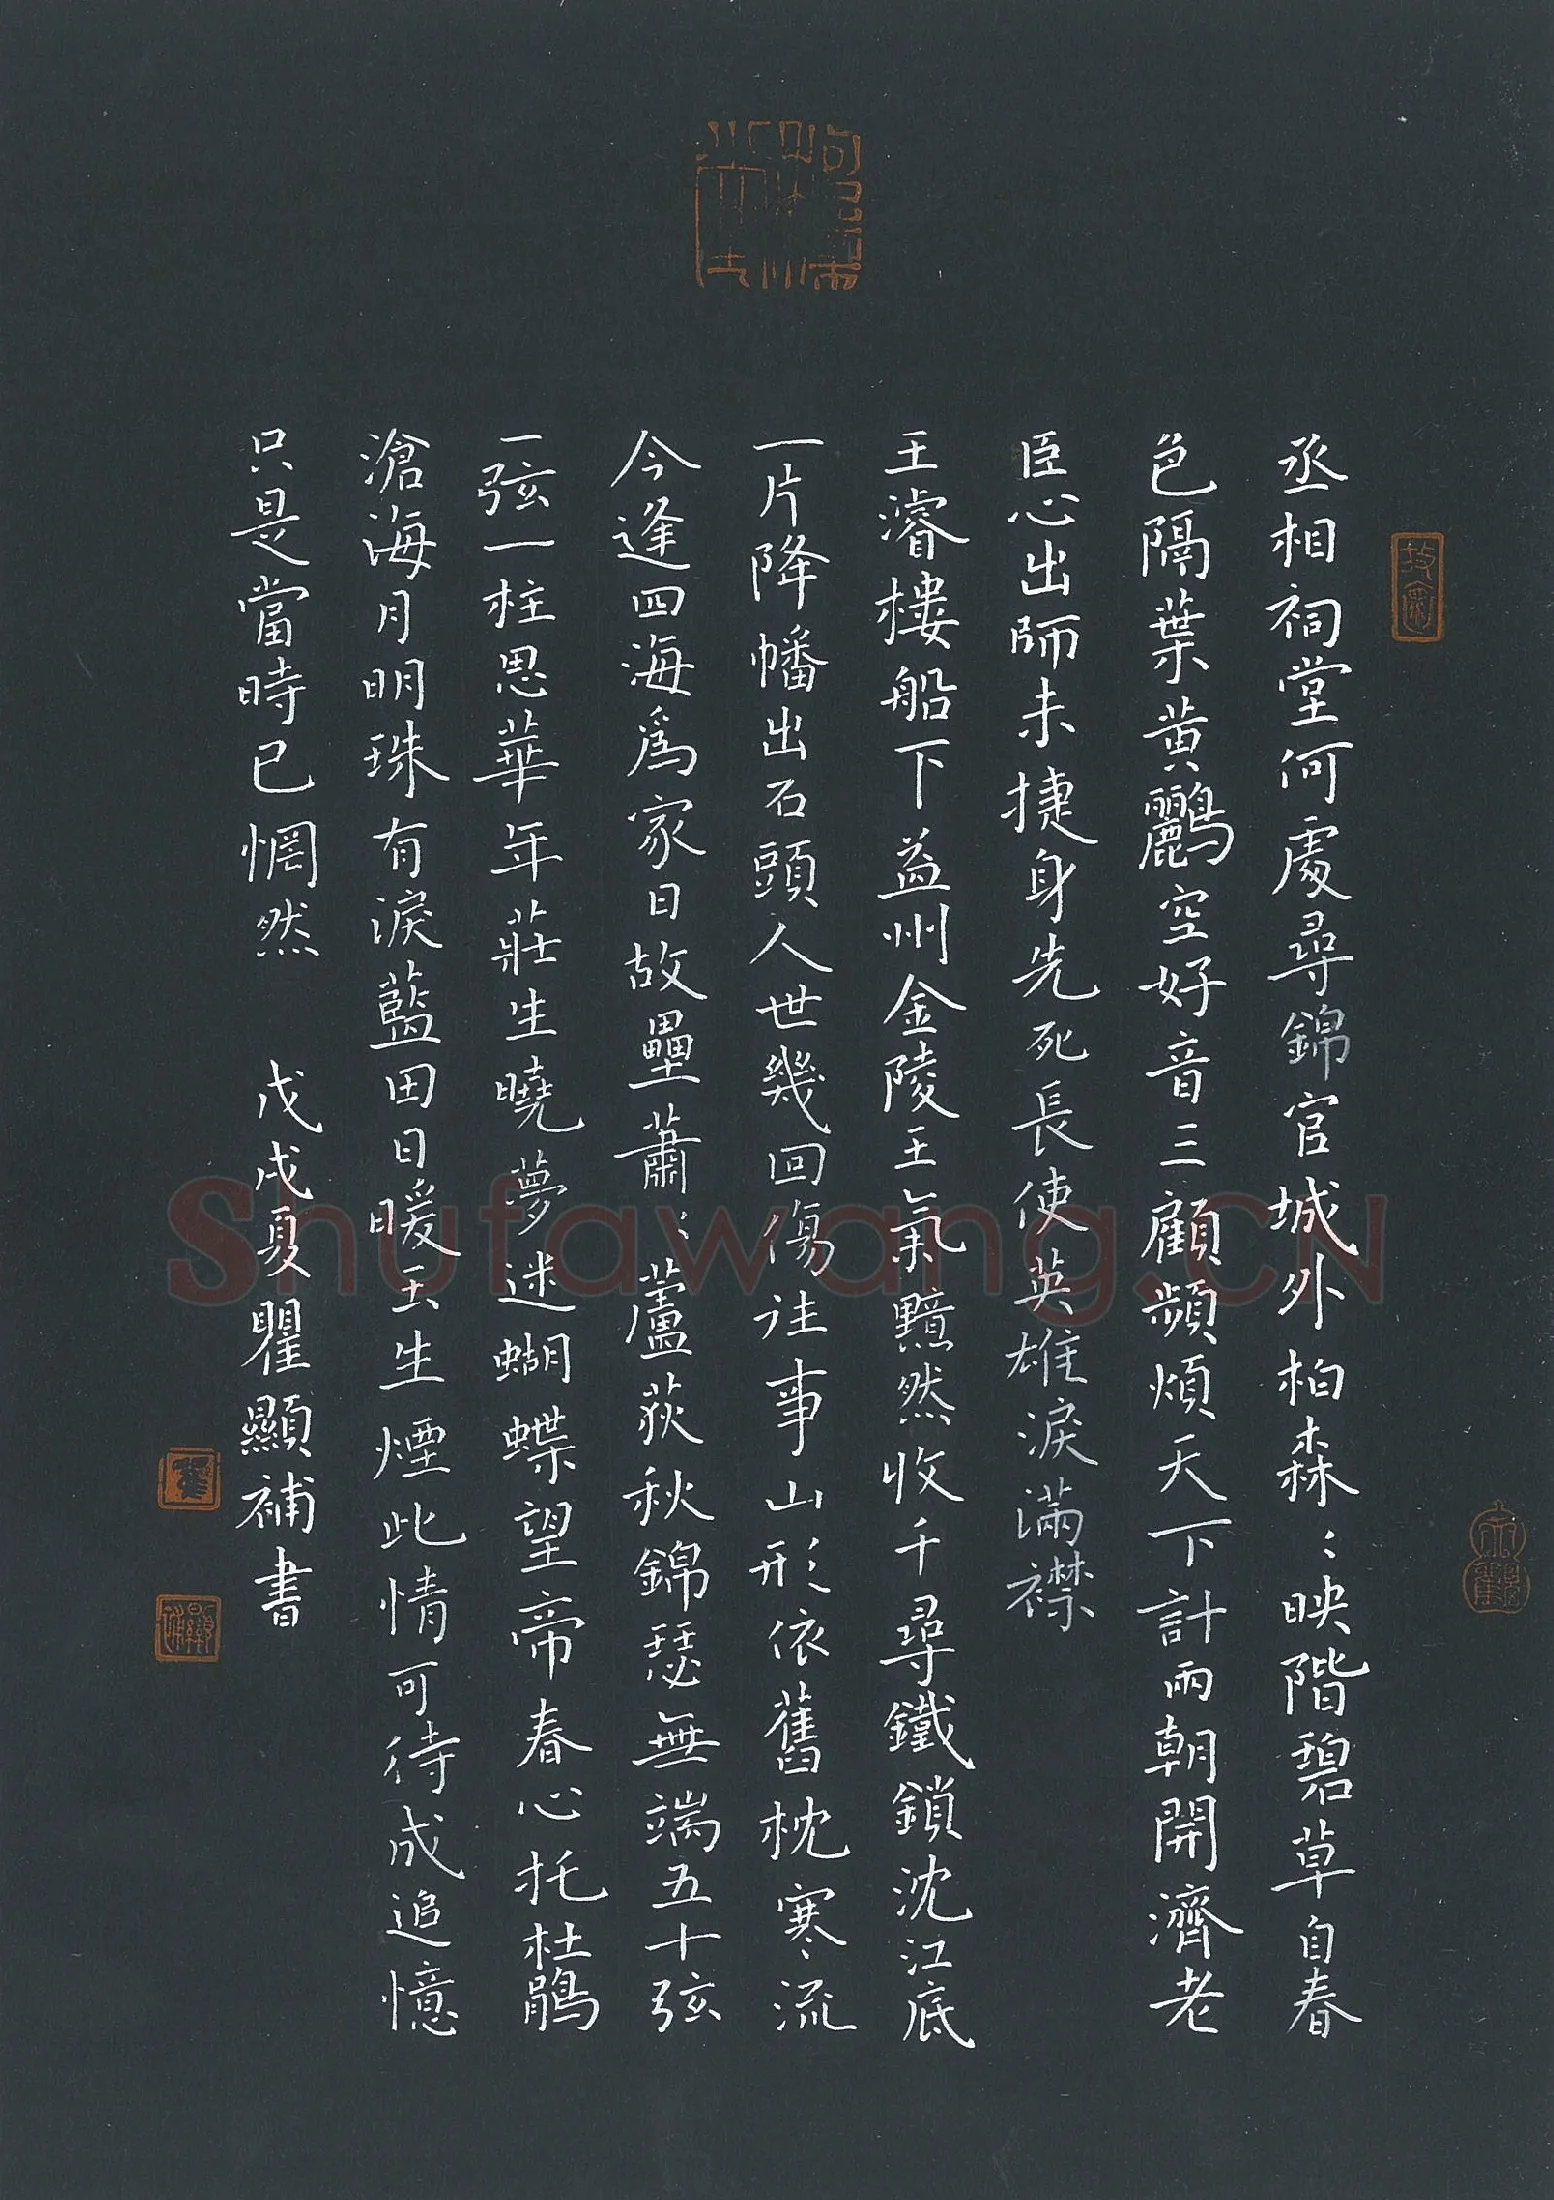 丞相祠堂何處尋錦官城外柏森〻映階碧草自春
色隔葉黃鸝空好音三顧頻煩天下計兩朝開濟老
臣心出師未捷身先死長使英雄淚滿襟
王濬樓船下益州金陵王氣黯然收千尋鐵鎖沈江底
一片降幡出石頭人世幾回傷往事山形依舊枕寒流
今逢四海爲家日故壘蕭〻蘆荻秋錦瑟無端五十弦
一弦一柱思華年莊生曉夢迷蝴蝶望帝春心托杜鵑
滄海月明珠有淚藍田日暖玉生煙此情可待成追憶
只是當時已惘然 戊戌夏瞿顯補書
Shufawang.CN